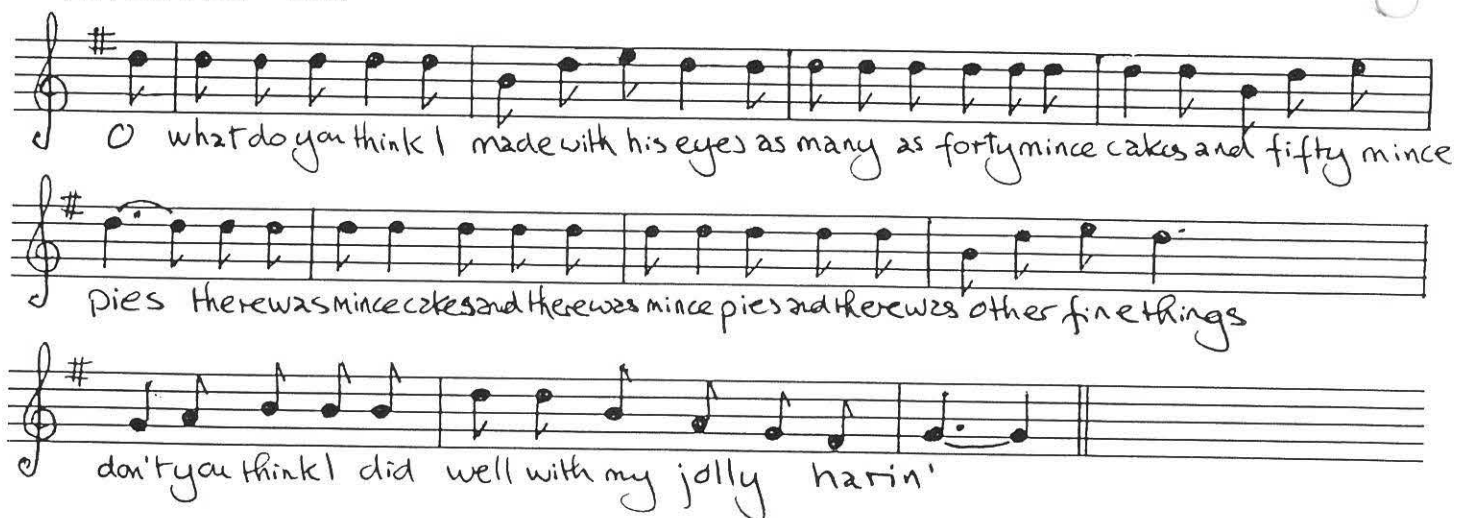 O what do you think I made with his eyes as many as forty mince cakes and fifty mince
pies there was mince cakes and there was mince pies and there was other fine things
don't you think I did well with my jolly harin'